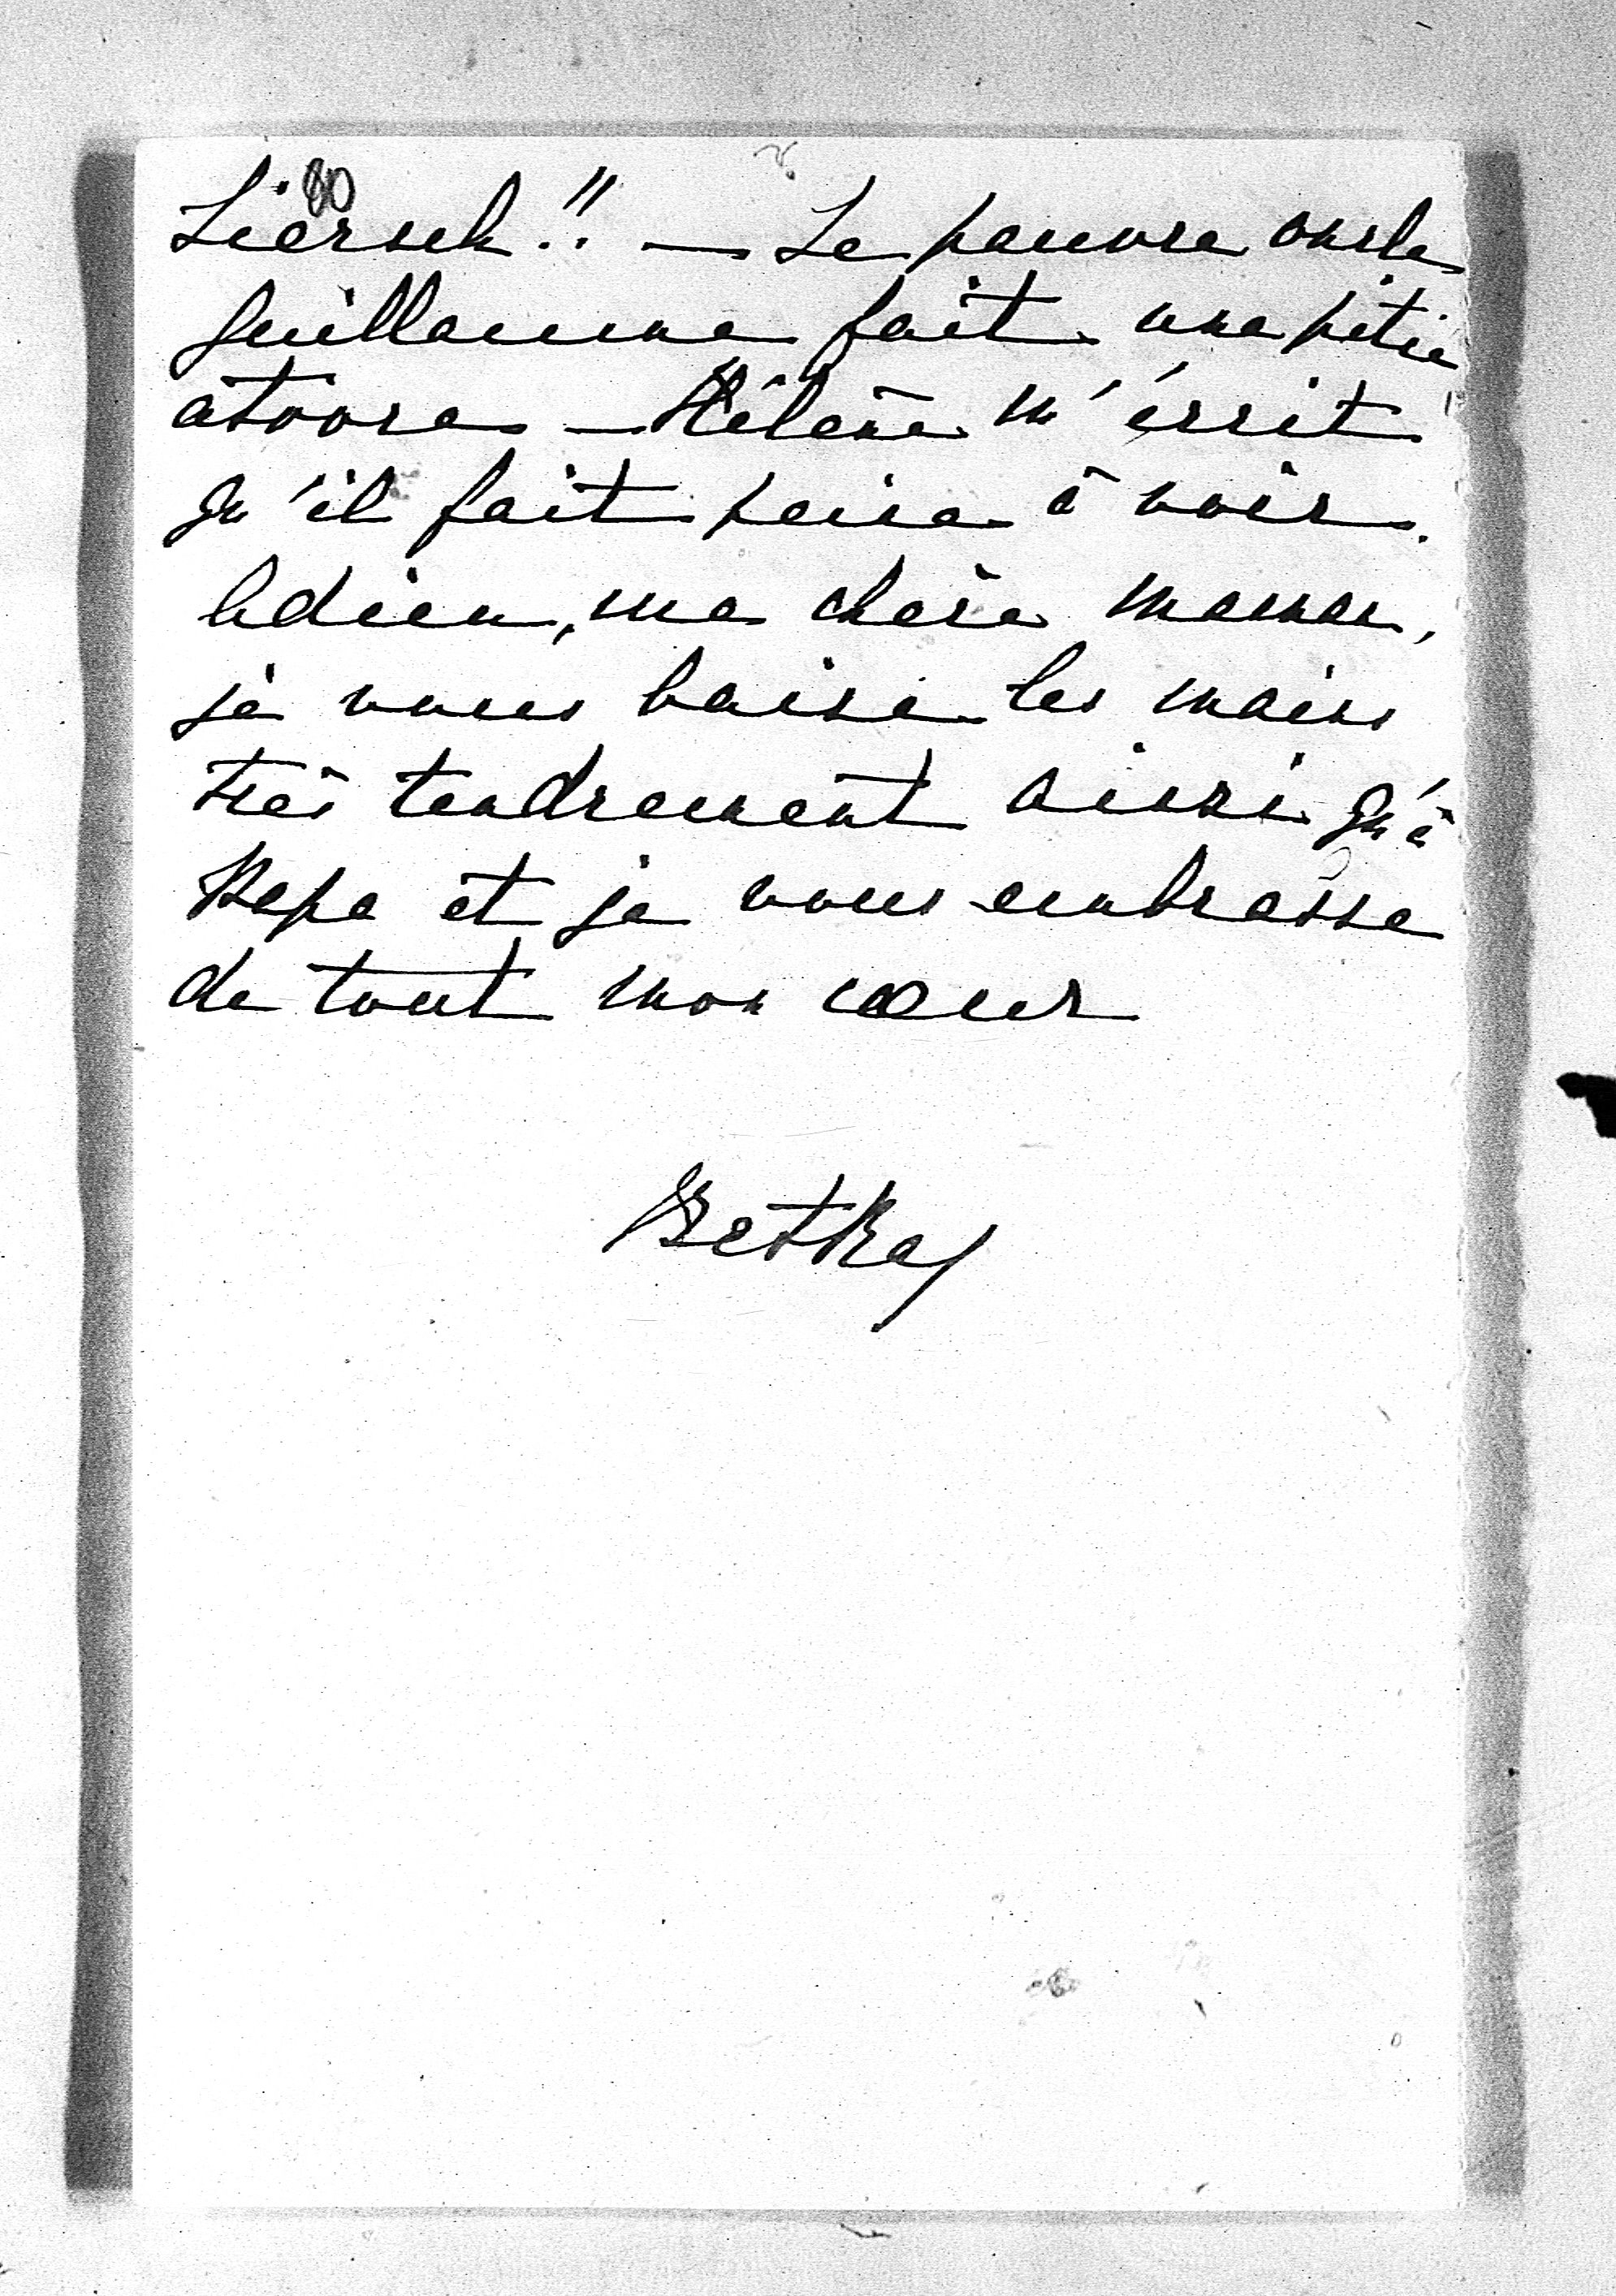 80
!! — Le pauvre oncle
Guillaume fait une pitié
atroce — Hélène m'écrit
qu'il fait peine à voir.
Adieu, ma chère maman,
je vous baise les mains
très tendrement ainsi qu'à
Papa et je vous embrasse
de tout mon cœur
Betka